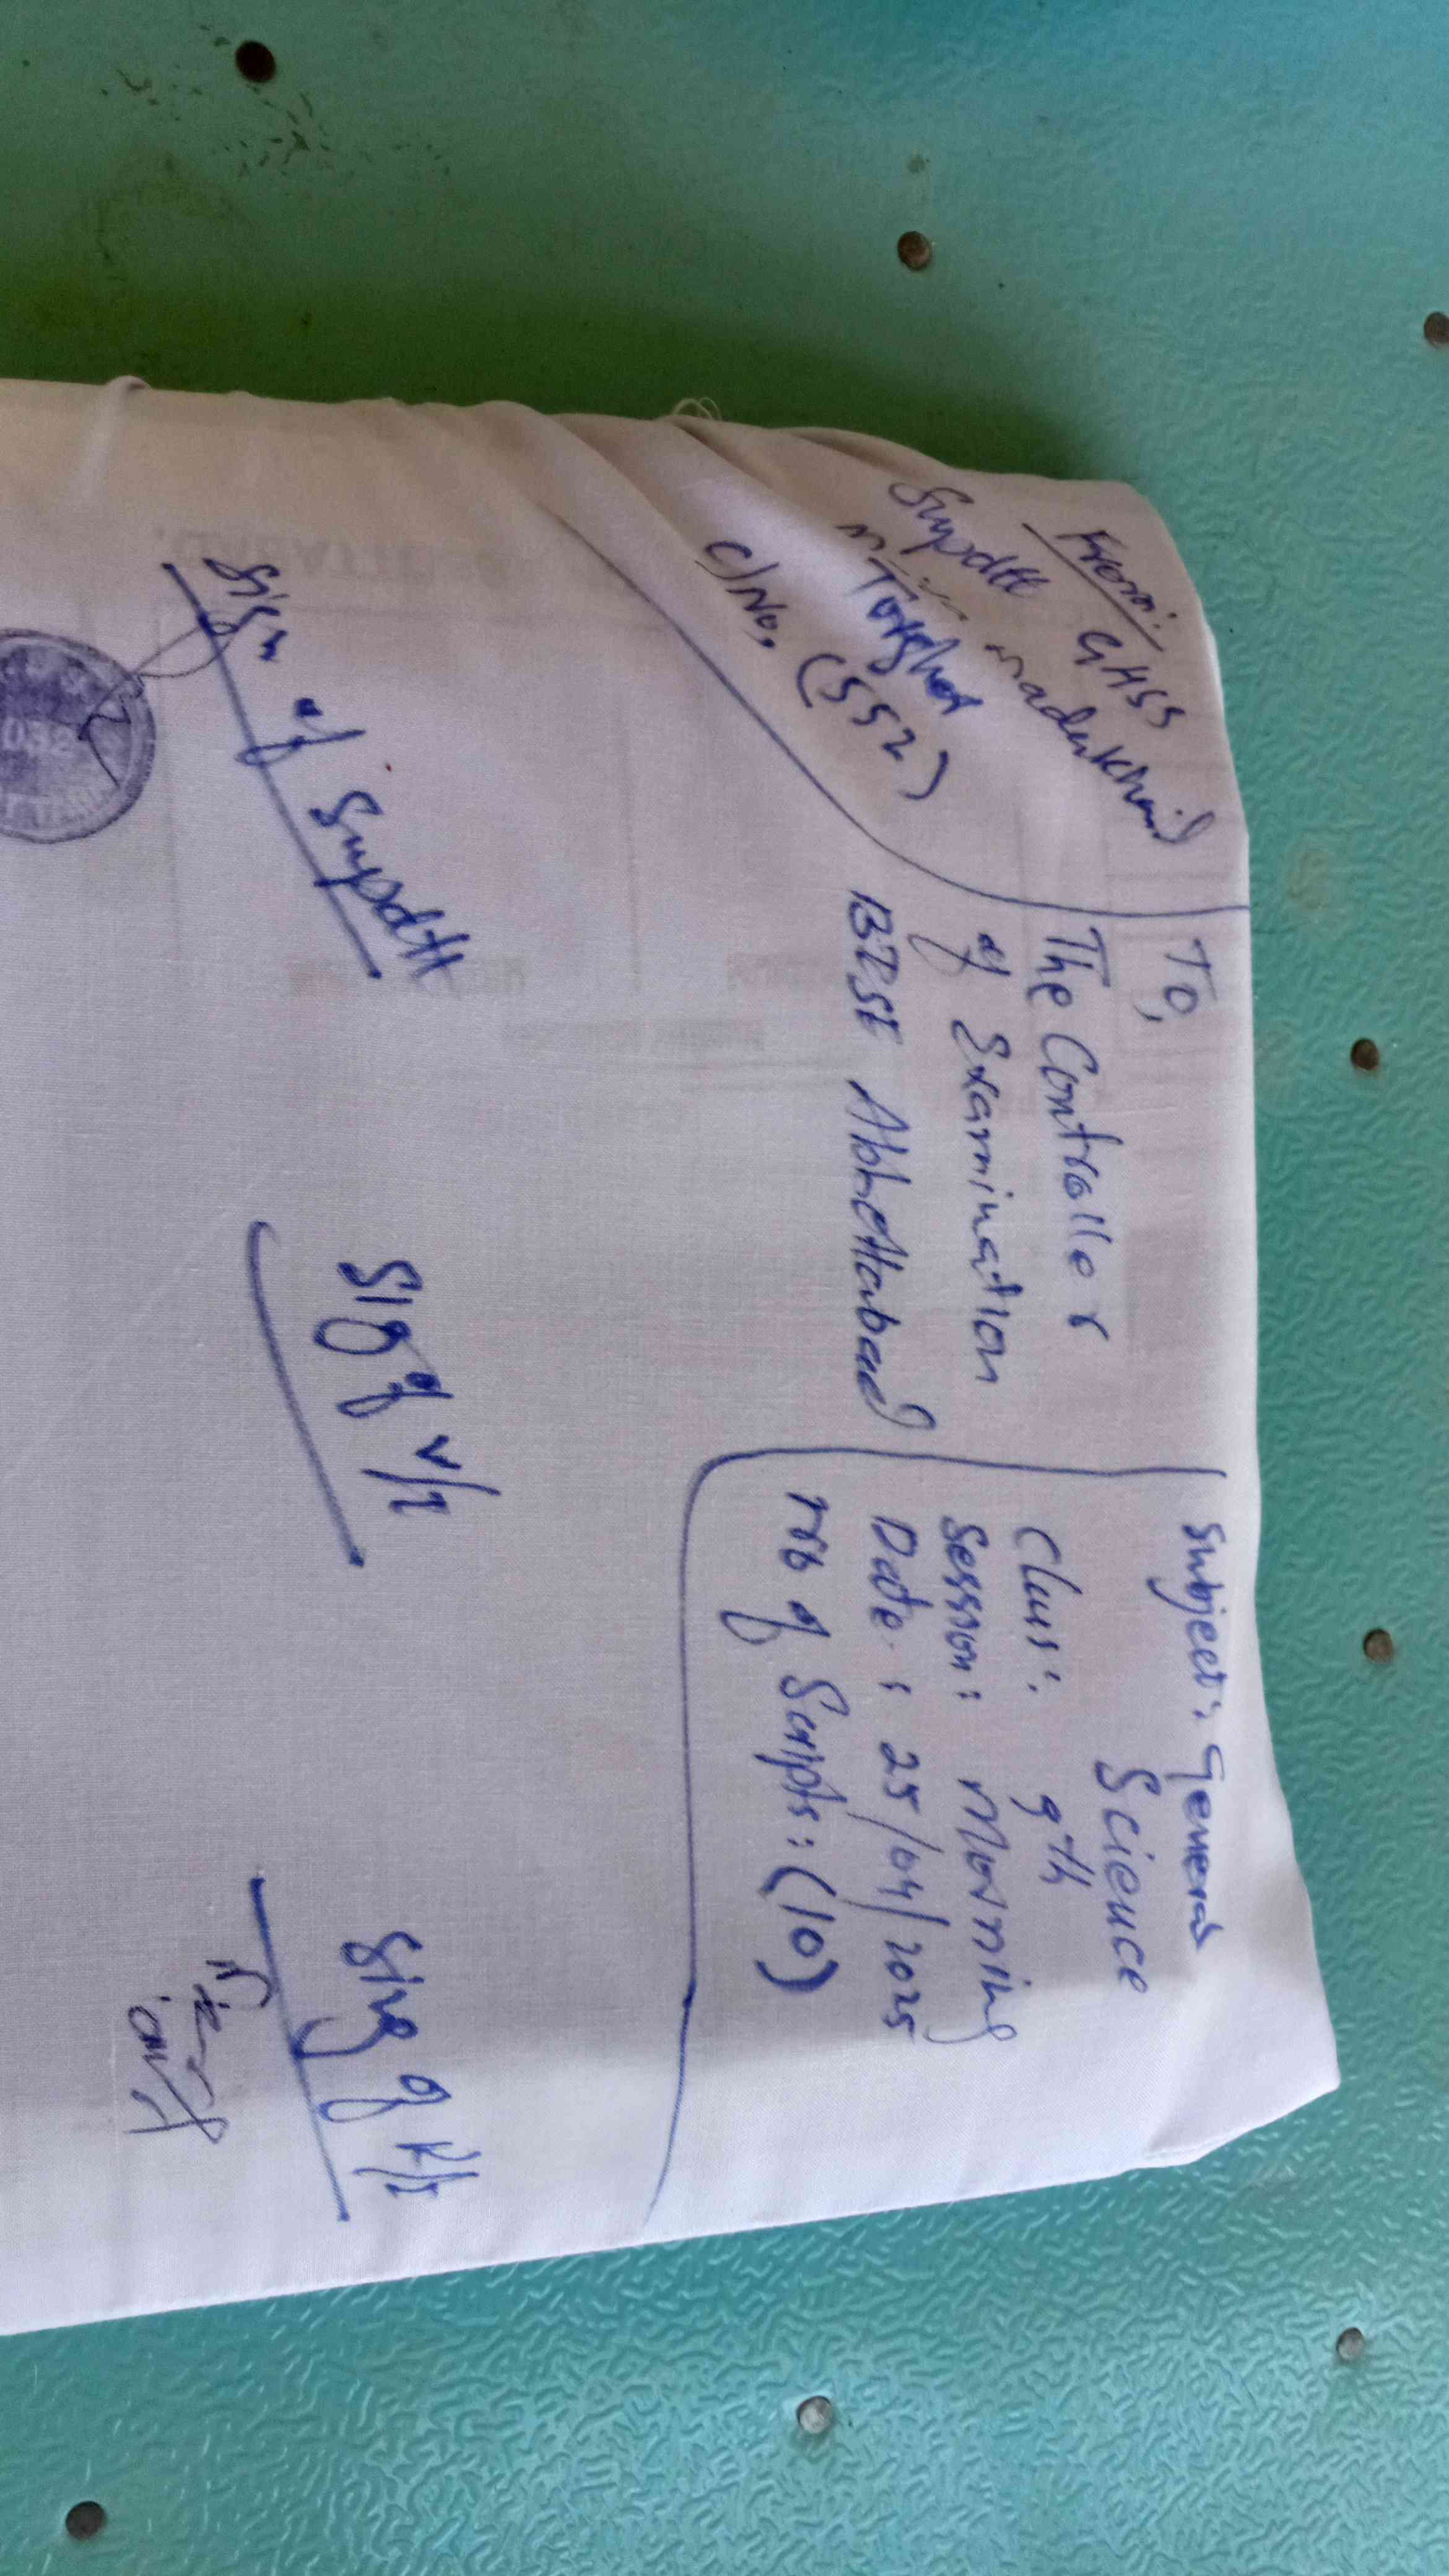 From:
Supdtt GHSS
maderkhail
Torghar
C/No. (552)
To,
The Controller
of Examination
BISE Abbottabad
Subject: General
Science
Class: 9th
Session: Morning
Date: 25/04/2025
No of Scripts: (10)
Sign of Supdtt
Sig of V/I
Sing of R/I